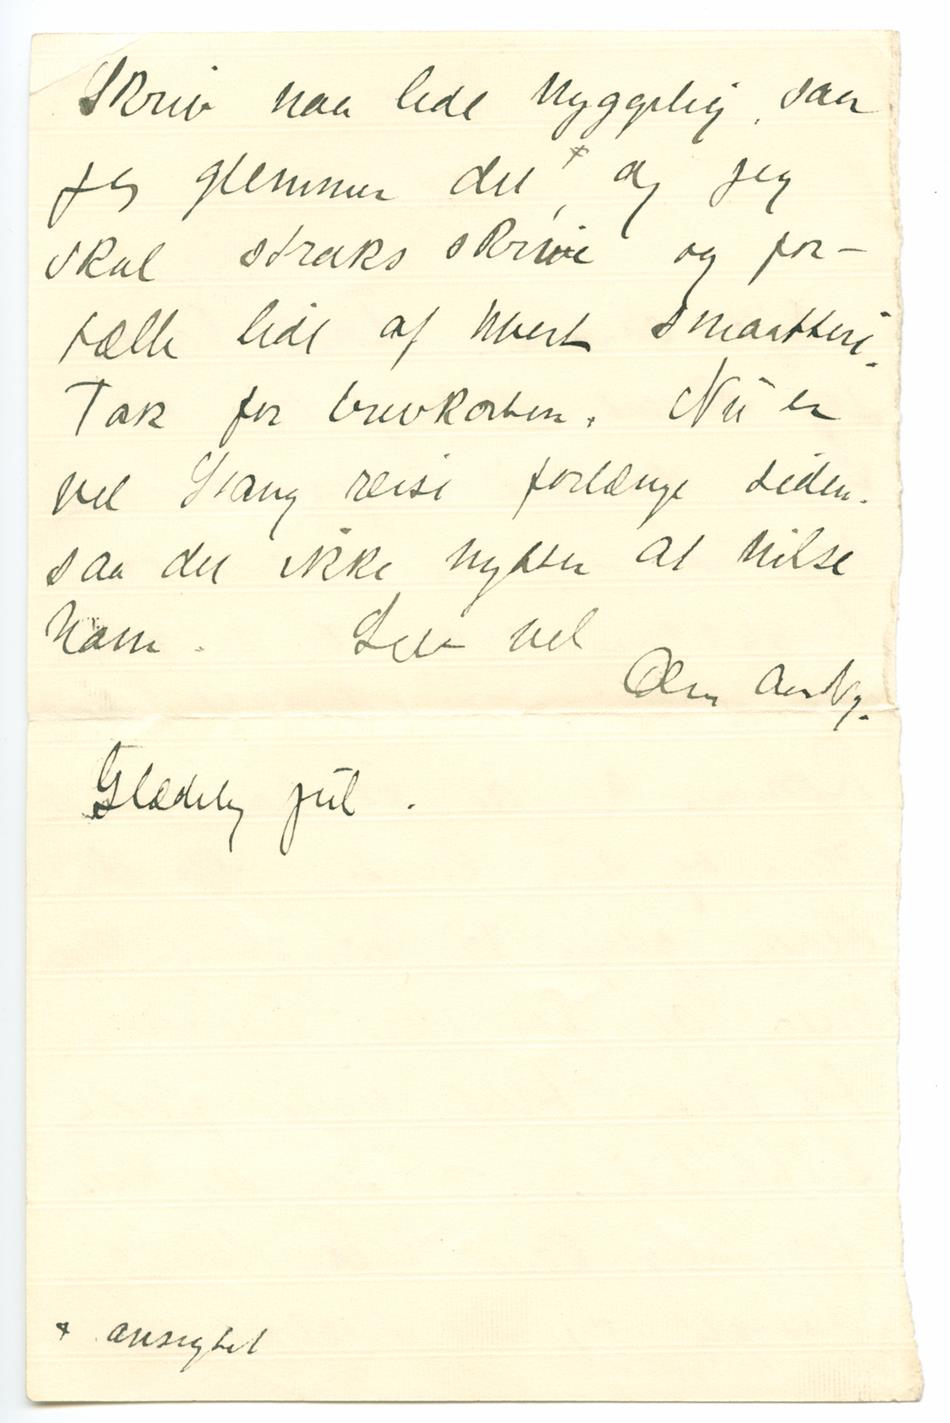 Skriv naa lidt hyggelig, saa
jeg glemmer det *, og jeg
skal straks skrive og for-
tælle lidt af hvert smaatteri.
Tak for brevkortene. Nu er
vel Stang reist forlænge siden.
saa det ikke nytter at hilse
ham. Lev vel
Glædelig jul.
* ansigtet